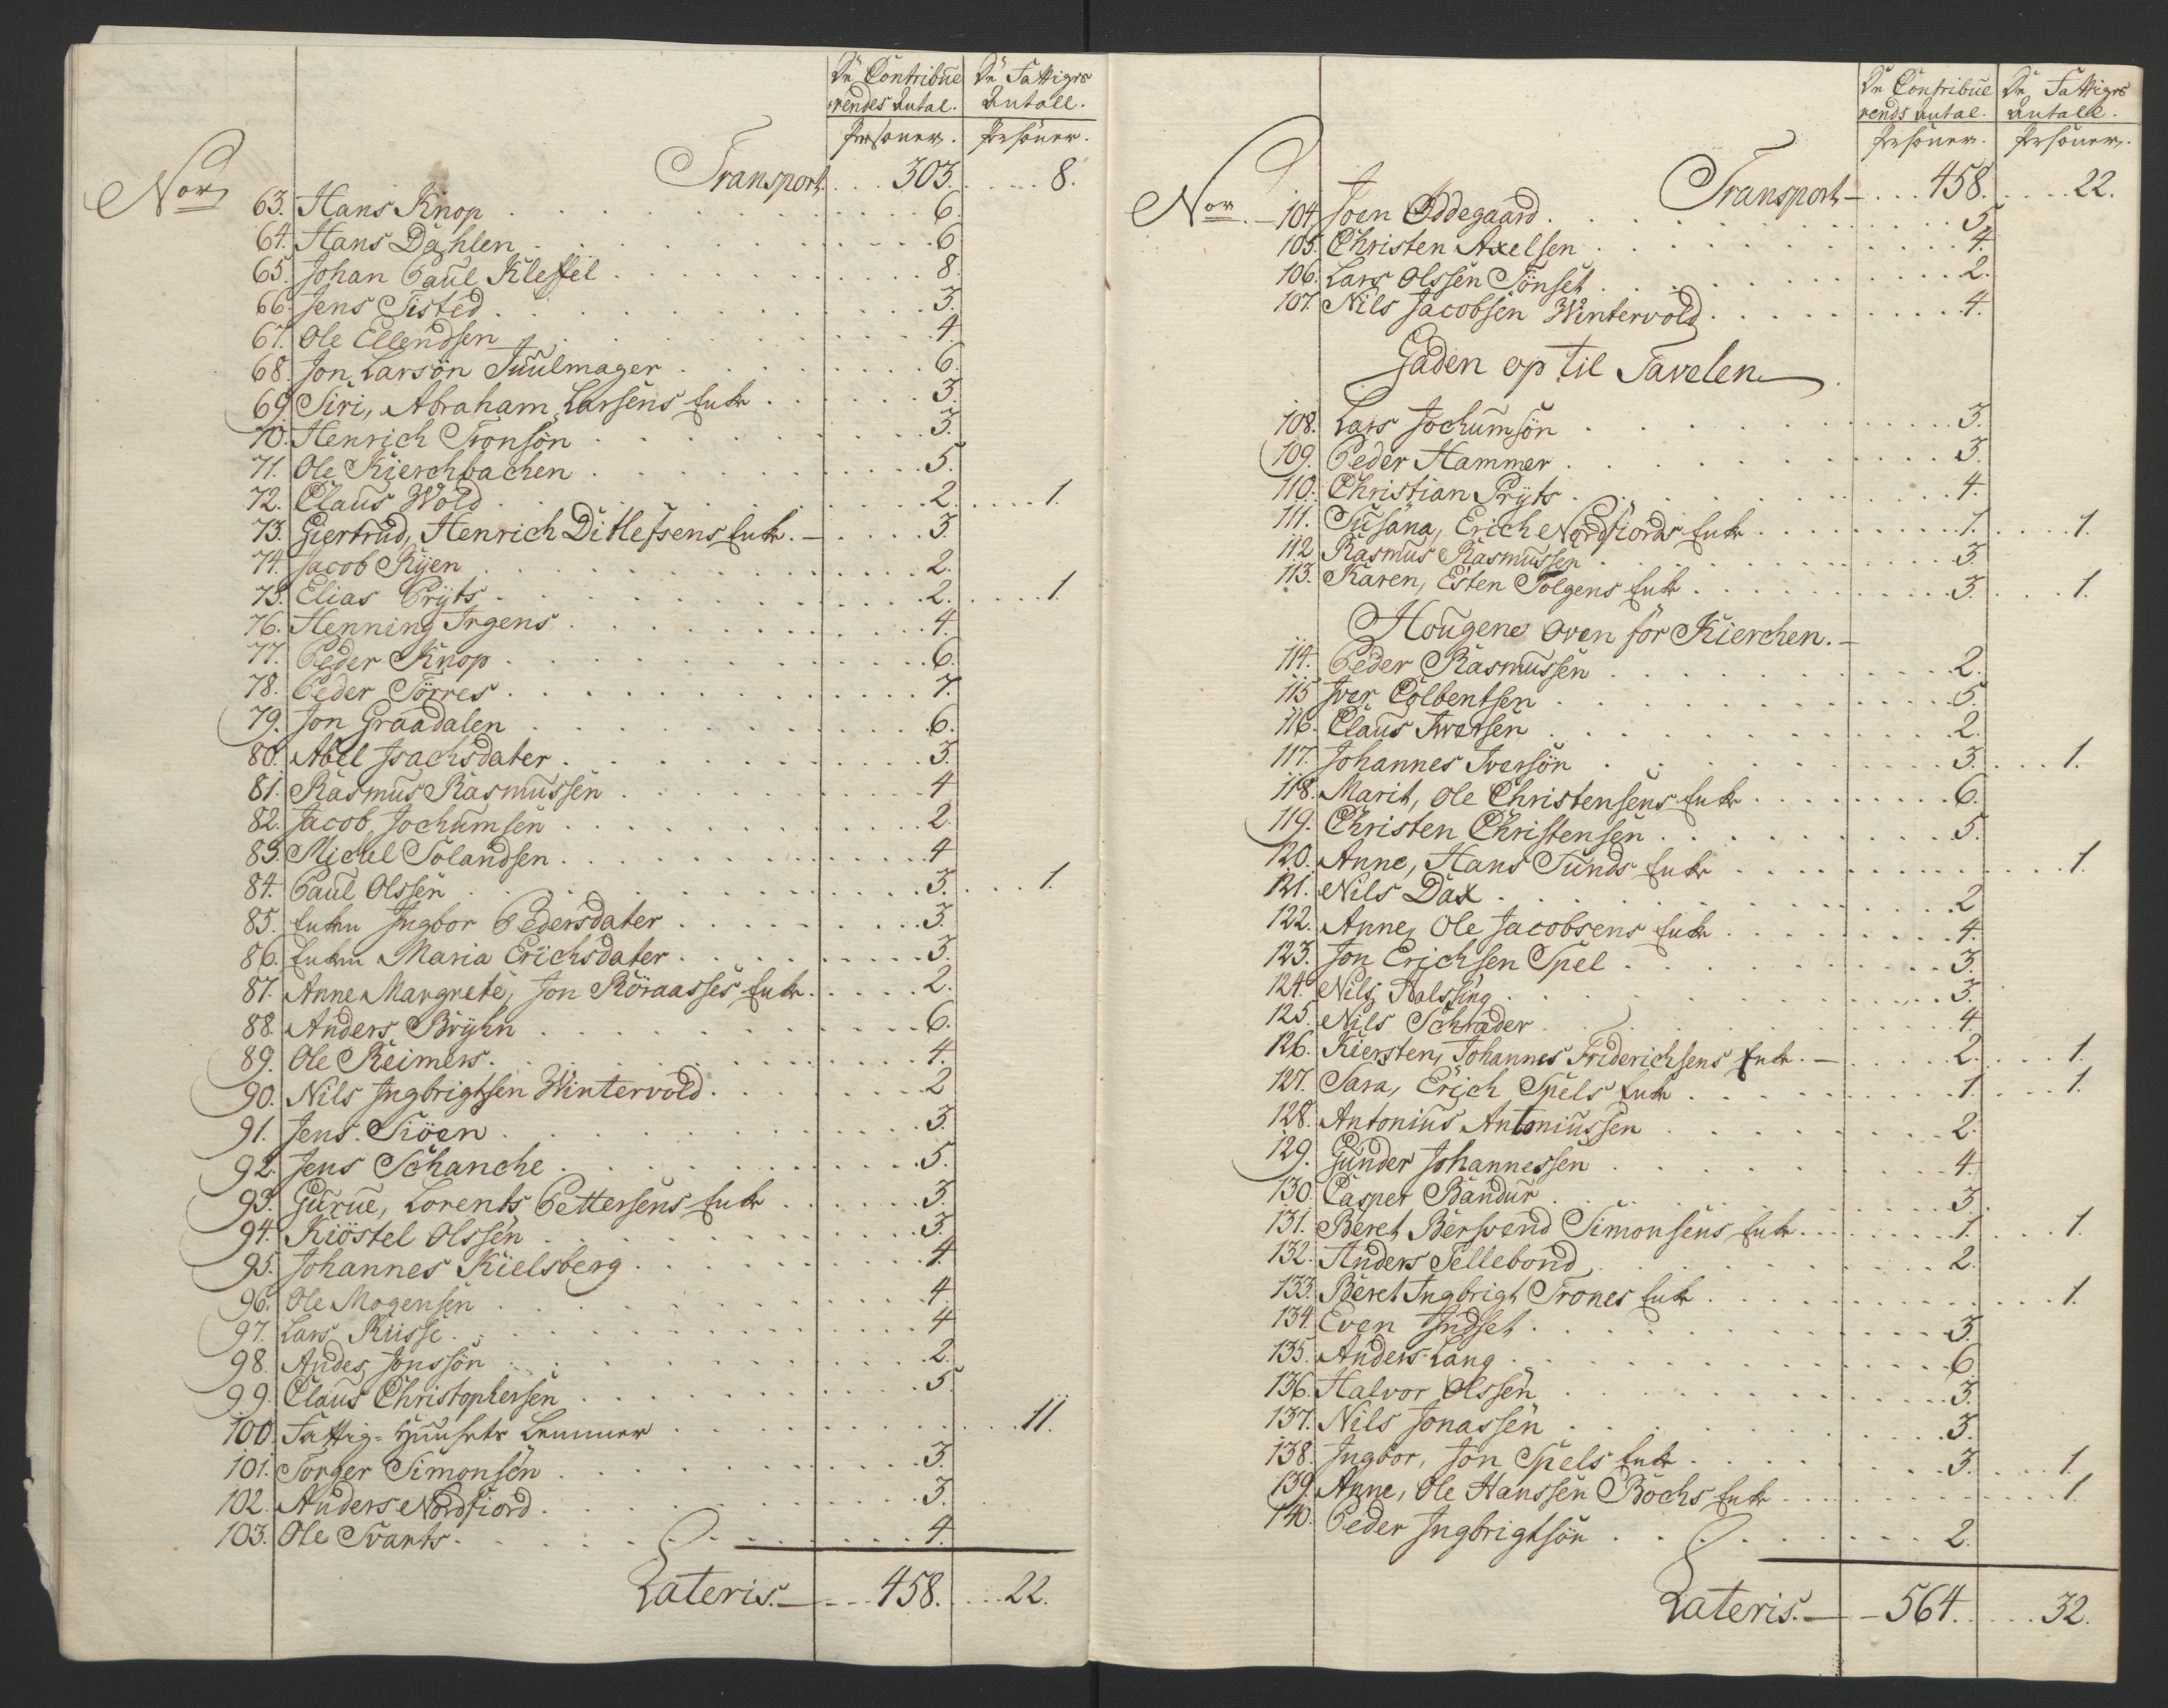 De Contribue De Fattiges
rendes Antal. Antall.
Personer. Personer.
Nor Transport 303. 8.
63. Hans Knop 6.
64. Hans Dahlen 6
65. Johan Paul Kleffel 8.
66. Jens Sisted 3.
67. Ole Ellendsen 4.
68. Jon Larsøn Juulmager 6.
69. Siri, Abraham Larsens Enke 3.
70. Henrich Tronsøn 3.
71. Ole Kierchbachen 5.
72. Claus Wold 2. 1.
73. Giertrud, Henrich Ditlefsens Enke. 3.
74. Jacob Ryen 2.
75. Elias Pryts 2. 1.
76. Henning Irgens 4.
77. Peder Knop 6.
78. Peder Törres 7.
79. Jon Graadalen 6.
80. Abel Isachsdater 3.
81. Rasmus Rasmussen 4
82. Jacob Jochumsen 2.
83. Michel Tolandsen 4
84. Paul Olssen 3. 1.
85. Enken Ingbor Pedersdater 3.
86. Enken Maria Erichsdater 3.
87. Anne Margrete, Jon Röraasses Enke. 2.
88. Anders Bryhn 6.
89. Ole Reimers. 4.
90. Nils Ingbrigtsen Wintervold. 2
91. Jens Siöen 3.
92. Jens Schanche 5.
93. Gurue, Lorents Pettersens Enke 3.
94. Kiöstel Olssen 3.
95. Johannes Kielsberg 4.
96. Ole Mogensen 4.
97. Lars Riisse. 4
98. Andes Jonssön 2.
99. Claus Christophersen 5.
100. Fattig-Huusets Lemmer 11.
101. Torger Simonsen 3.
102. Anders Nordfiord. 3.
103. Ole Svarts. 4.
Lateris. 458. 22.
De Contribue De Fattiges
rends Antal. Antall.
Personer. Personer.
Nor Transport 458. 22.
104. Joen Oddegaard. 5
105. Christen Axelsen 4.
106. Lars Olssen Tönset 2.
107. Nils Jacobsen Wintervold 4.
Gaden op til Tavelen
108. Lars Jochumsön 3.
109. Peder Hammer 3.
110. Christian Pryts 4.
111. Susana, Erich Nordfiords Enke 1. 1.
112 Rasmus Rasmussen 3.
113. Karen, Esten Tolgens Enke 3. 1.
Hougene oven for Kierchen.
114. Peder Rasmussen 2.
115 Iver Colbentsen 5.
116. Claus Iversen 2.
117. Johannes Iversön 3. 1.
118. Marit, Ole Christensens Enke 6.
119. Christen Christensen 5.
120. Anne, Hans Sunds Enke 1.
121. Nils Dax 2
122. Anne, Ole Jacobsens Enke 4.
123. Jon Erichsen Spel 3.
124. Nils Aalssing 3.
125. Nils Schrader 4.
126. Kiersten, Johannes Friderichsens Enke. 2. 1.
127. Sara, Erich Spels Enke 1. 1.
128. Antonius Antoniussen 2.
129. Gunder Johannessen 4.
130. Casper Bandur 3.
131. Beret Bersvend Simonsens Enke 1. 1.
132. Anders Tellebond 2.
133. Beret Ingbrigt Trones Enke 1.
134. Even Indset 3.
135. Anders Lang 6
136. Halvor Olssen 3.
137. Nils Jonassen 3.
138. Ingbor, Jon Spels Enke 3. 1.
139. Anne, Ole Hanssen Bochs Enke 1.
140. Peder Ingbrigtsön 2.
Lateris. 564. 32.